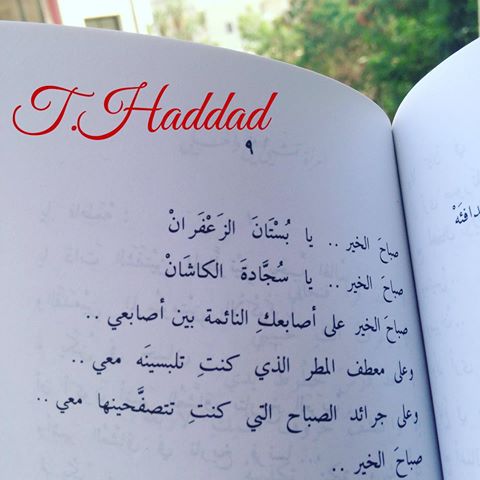 T.Haddad
٩
صباحَ الخير .. يا بُسْتَانَ الزَعْفَرانْ
صباحَ الخير .. يا سُجَّادةَ الكاشَانْ
صباحَ الخير على أصابعكِ النائمة بين أصابعي ..
وعلى معطف المطر الذي كنتِ تلبسينَه معي ..
وعلى جرائد الصباح التي كنتِ تتصفَّحينها معي ..
صباحَ الخير ..